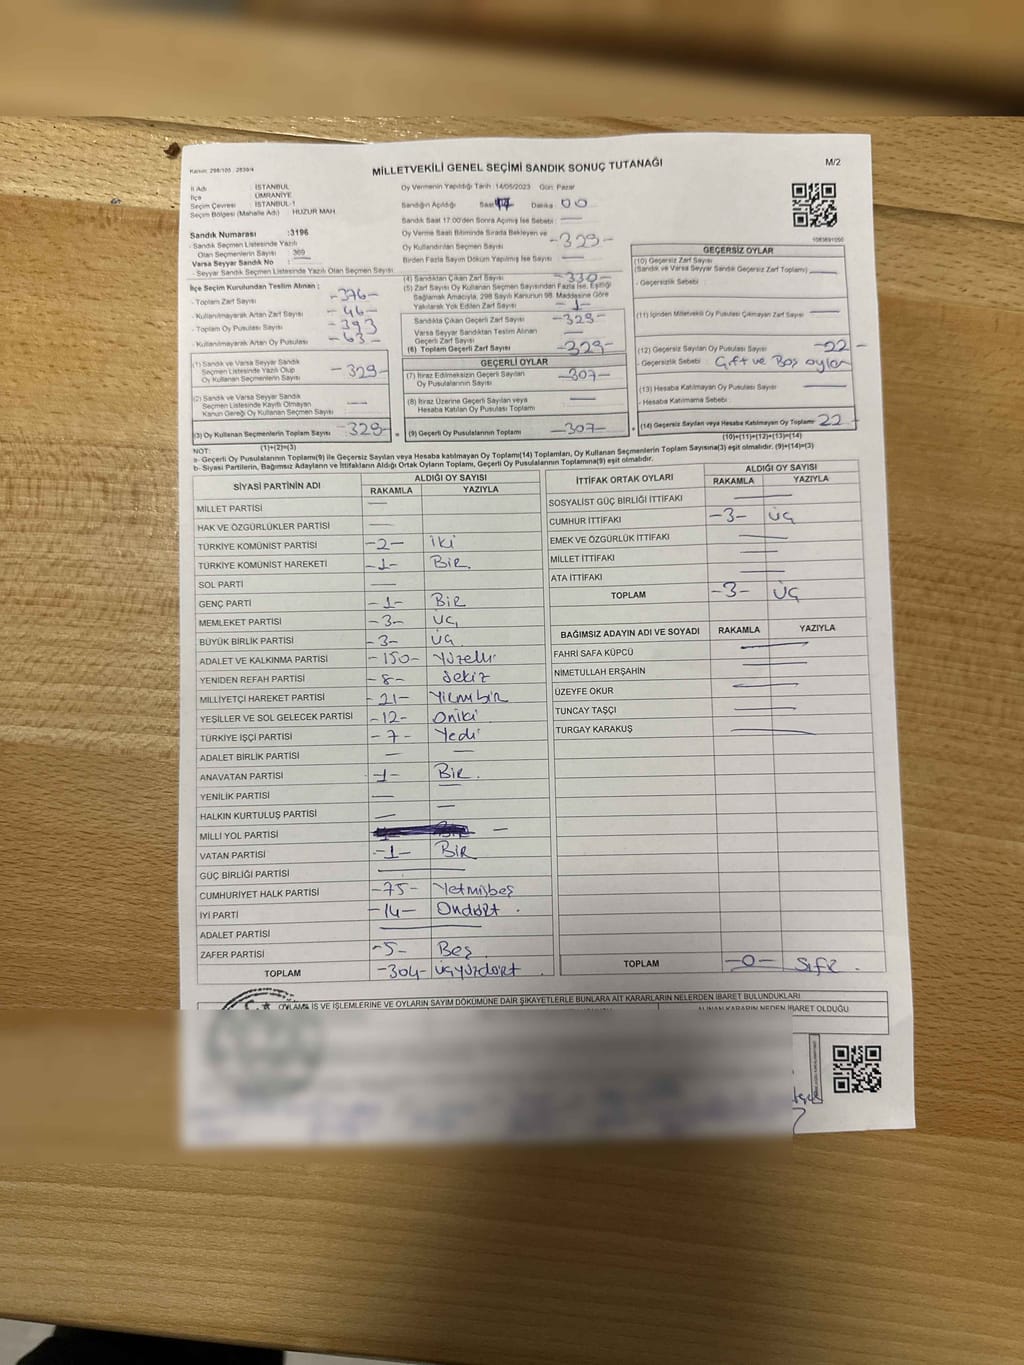 Kanun: 298/105 , 2839/4
MİLLETVEKİLİ GENEL SEÇİMİ SANDIK SONUÇ TUTANAĞI
M/2
İl Adı : İSTANBUL
İlçe : ÜMRANİYE
Seçim Çevresi : İSTANBUL-1
Seçim Bölgesi (Mahalle Adı) : HUZUR MAH.
Sandık Numarası :3196
- Sandık Seçmen Listesinde Yazılı
Olan Seçmenlerin Sayısı : 369
Varsa Seyyar Sandık No :
- Seyyar Sandık Seçmen Listesinde Yazılı Olan Seçmen Sayısı
İlçe Seçim Kurulundan Teslim Alınan ;
- Toplam Zarf Sayısı -376-
- Kullanılmayarak Artan Zarf Sayısı -46-
- Toplam Oy Pusulası Sayısı -393-
- Kullanılmayarak Artan Oy Pusulası -63-
(1) Sandık ve Varsa Seyyar Sandık
Seçmen Listesinde Yazılı Olup
Oy Kullanan Seçmenlerin Sayısı -329-
(2) Sandık ve Varsa Seyyar Sandık
Seçmen Listesinde Kayıtlı Olmayan
Kanun Gereği Oy Kullanan Seçmen Sayısı —
(3) Oy Kullanan Seçmenlerin Toplam Sayısı -329-
(1)+(2)=(3)
Oy Vermenin Yapıldığı Tarih :14/05/2023 Gün: Pazar
Sandığın Açıldığı Saat: 17 Dakika: 00
Sandık Saat 17:00'den Sonra Açılmış İse Sebebi : —
Oy Verme Saati Bitiminde Sırada Bekleyen ve
Oy Kullandırılan Seçmen Sayısı -329-
Birden Fazla Sayım Döküm Yapılmış İse Sayısı —
(4) Sandıktan Çıkan Zarf Sayısı -330-
(5) Zarf Sayısı Oy Kullanan Seçmen Sayısından Fazla İse, Eşitliği
Sağlamak Amacıyla, 298 Sayılı Kanunun 98. Maddesine Göre
Yakılarak Yok Edilen Zarf Sayısı -1-
Sandıkta Çıkan Geçerli Zarf Sayısı -329-
Varsa Seyyar Sandıktan Teslim Alınan
Geçerli Zarf Sayısı —
(6) Toplam Geçerli Zarf Sayısı -329-
GEÇERLİ OYLAR
(7) İtiraz Edilmeksizin Geçerli Sayılan
Oy Pusulasının Sayısı -307-
(8) İtiraz Üzerine Geçerli Sayılan veya
Hesaba Katılan Oy Pusulası Toplamı —
(9) Geçerli Oy Pusulalarının Toplamı -307-
GEÇERSİZ OYLAR
(10) Geçersiz Zarf Sayısı
(Sandık ve Varsa Seyyar Sandık Geçersiz Zarf Toplamı) —
- Geçersizlik Sebebi :
(11) İçinden Milletvekili Oy Pusulası Çıkmayan Zarf Sayısı —
(12) Geçersiz Sayılan Oy Pusulası Sayısı -22-
- Geçersizlik Sebebi : Çift ve Boş oylar
(13) Hesaba Katılmayan Oy Pusulası Sayısı —
- Hesaba Katılmama Sebebi :
(14) Geçersiz Sayılan veya Hesaba Katılmayan Oy Toplamı 22-
(10)+(11)+(12)+(13)=(14)
NOT:
a- Geçerli Oy Pusulalarının Toplamı(9) ile Geçersiz Sayılan veya Hesaba katılmayan Oy Toplamı(14) Toplamları, Oy Kullanan Seçmenlerin Toplam Sayısına(3) eşit olmalıdır. (9)+(14)=(3)
b- Siyasi Partilerin, Bağımsız Adayların ve İttifakların Aldığı Ortak Oyların Toplamı, Geçerli Oy Pusulalarının Toplamına(9) eşit olmalıdır.
SİYASİ PARTİNİN ADI ALDIĞI OY SAYISI
RAKAMLA YAZIYLA
MİLLET PARTİSİ —
HAK VE ÖZGÜRLÜKLER PARTİSİ —
TÜRKİYE KOMÜNİST PARTİSİ -2- iki
TÜRKİYE KOMÜNİST HAREKETİ -1- Bir.
SOL PARTİ —
GENÇ PARTİ -1- Bir
MEMLEKET PARTİSİ -3- üç
BÜYÜK BİRLİK PARTİSİ -3- üç
ADALET VE KALKINMA PARTİSİ -150- Yüzelli
YENİDEN REFAH PARTİSİ -8- Sekiz
MİLLİYETÇİ HAREKET PARTİSİ -21- Yirmibir
YEŞİLLER VE SOL GELECEK PARTİSİ -12- Oniki
TÜRKİYE İŞÇİ PARTİSİ -7- Yedi
ADALET BİRLİK PARTİSİ — —
ANAVATAN PARTİSİ -1- Bir.
YENİLİK PARTİSİ — —
HALKIN KURTULUŞ PARTİSİ — —
MİLLİ YOL PARTİSİ —
VATAN PARTİSİ -1- Bir
GÜÇ BİRLİĞİ PARTİSİ —
CUMHURİYET HALK PARTİSİ -75- Yetmişbeş
İYİ PARTİ -14- Ondört .
ADALET PARTİSİ —
ZAFER PARTİSİ -5- Beş
TOPLAM -304- üçyüzdört .
İTTİFAK ORTAK OYLARI ALDIĞI OY SAYISI
RAKAMLA YAZIYLA
SOSYALİST GÜÇ BİRLİĞİ İTTİFAKI —
CUMHUR İTTİFAKI -3- üç
EMEK VE ÖZGÜRLÜK İTTİFAKI —
MİLLET İTTİFAKI —
ATA İTTİFAKI —
TOPLAM -3- üç
BAĞIMSIZ ADAYIN ADI VE SOYADI RAKAMLA YAZIYLA
FAHRİ SAFA KÜPCÜ —
NİMETULLAH ERŞAHİN —
ÜZEYFE OKUR —
TUNCAY TAŞÇI —
TURGAY KARAKUŞ —
TOPLAM -0- Sıfır .
OYLAMA İŞ VE İŞLEMLERİNE VE OYLARIN SAYIM DÖKÜMÜNE DAİR ŞİKAYETLERLE BUNLARA AİT KARARLARIN NELERDEN İBARET BULUNDUKLARI
ALINAN KARARIN NEDEN İBARET OLDUĞU